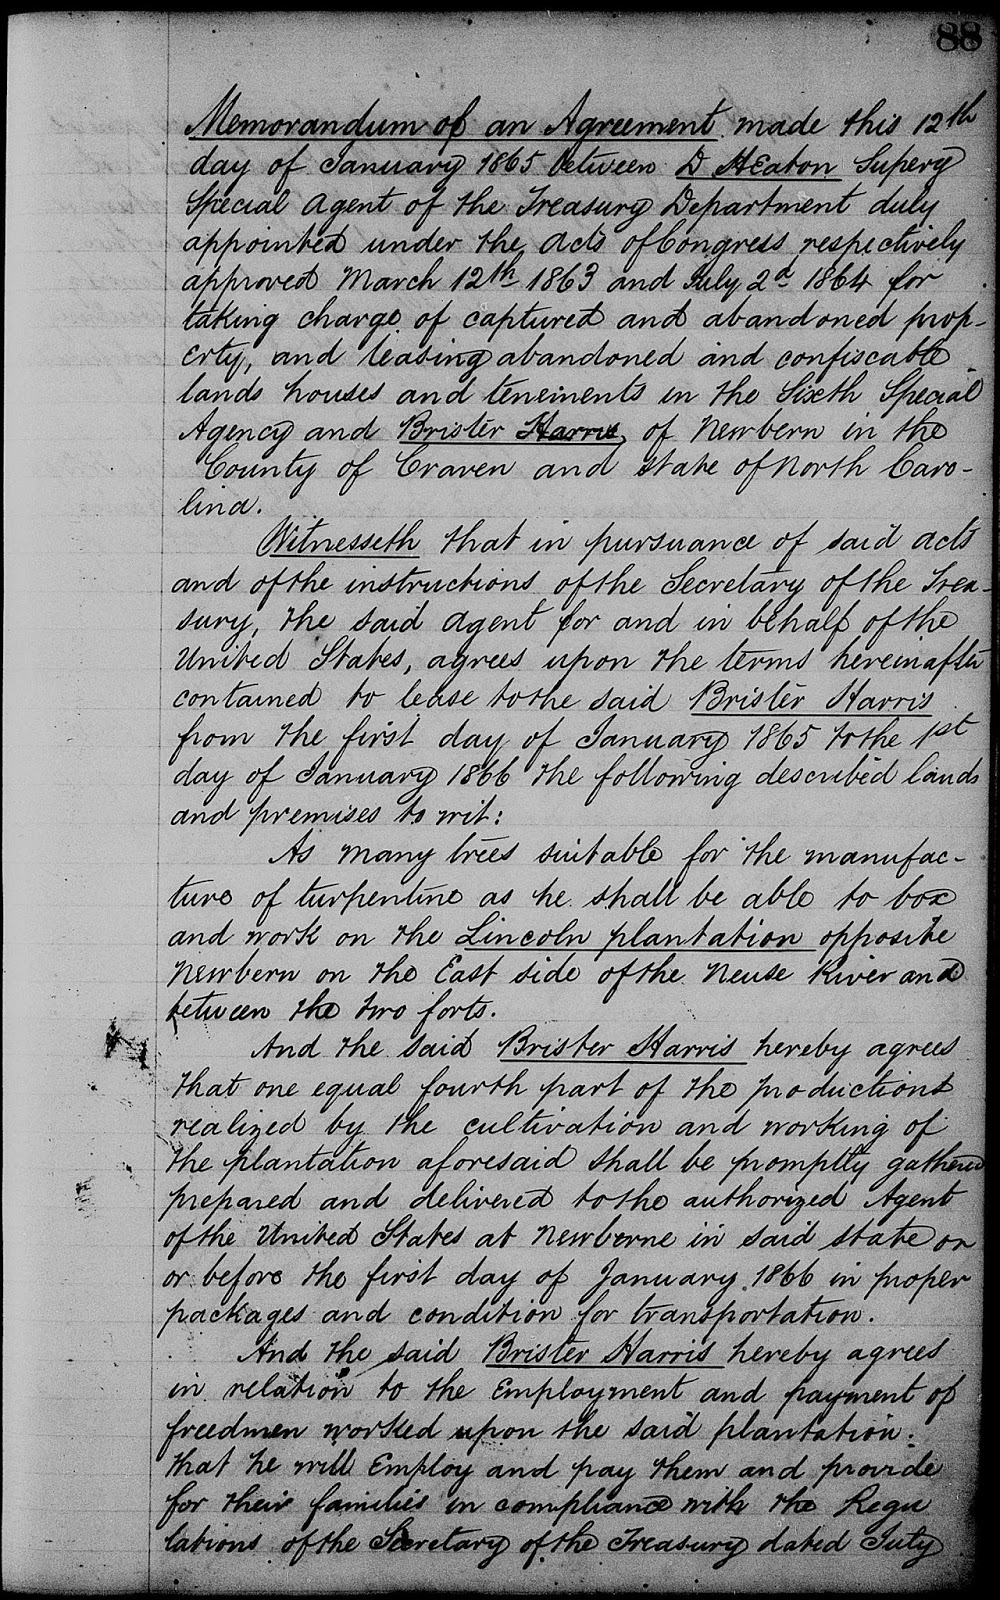 88
Memorandum of an Agreement made this 12th
day of January 1865 between D HEaton Superg
Special Agent of the Treasury Department duly
appointed under the acts of Congress respectively
approved March 12th 1863 and July 2d 1864 for
taking charge of captured and abandoned prop-
erty, and leasing abandoned and confiscable
lands houses and tenements in the Sixth Special
Agency and Brister Harris, of Newbern in the
County of Craven and state of North Caro-
lina.
Witnesseth that in pursuance of said acts
and of the instructions of the Secretary of the Trea-
sury, the said agent for and in behalf of the
United States, agrees upon the terms hereinafter
contained to lease to the said Brister Harris
from the first day of January 1865 to the 1st
day of January 1866 the following described lands
and premises to wit:
As many trees suitable for the manufac-
ture of turpentine as he shall be able to box
and work on the Lincoln plantation opposite
Newbern on the East side of the Neuse River and
between the two forts.
And the said Brister Harris hereby agrees
that one equal fourth part of the productions
realized by the cultivation and working of
the plantation aforesaid shall be promptly gathered
prepared and delivered to the authorized Agent
of the United States at Newberne in said state on
or before the first day of January 1866 in proper
packages and condition for transportation.
And the said Brister Harris hereby agrees
in relation to the Employment and payment of
freedmen worked upon the said plantation.
that he will Employ and pay them and provide
for their families in compliance with the Regu
lations of the Secretary of the Treasury dated July